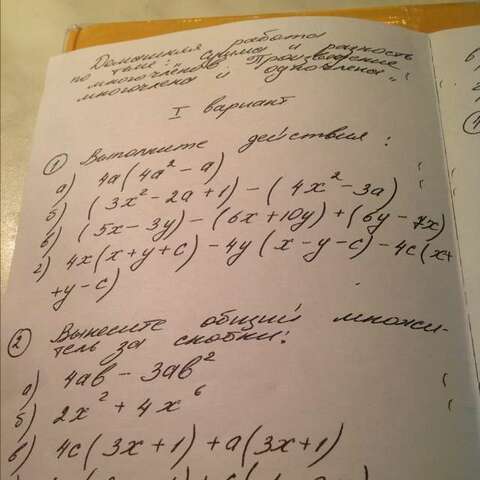 Домашняя работа
по теме: „Сумма и разность
многочленов. Произведение
многочлена и одночлена"
I вариант
① Выполните действия:
а) 4a(4a² - a)
б) (3x² - 2a + 1) - (4x² - 3a)
в) (5x - 3y) - (6x + 10y) + (6y - 7x)
г) 4x(x + y + c) - 4y(x - y - c) - 4c(x +
+ y - c)
② Вынесите общий множи-
тель за скобки:
а) 4ab - 3ab²
б) 2x² + 4x⁶
в) 4c(3x + 1) + a(3x + 1)